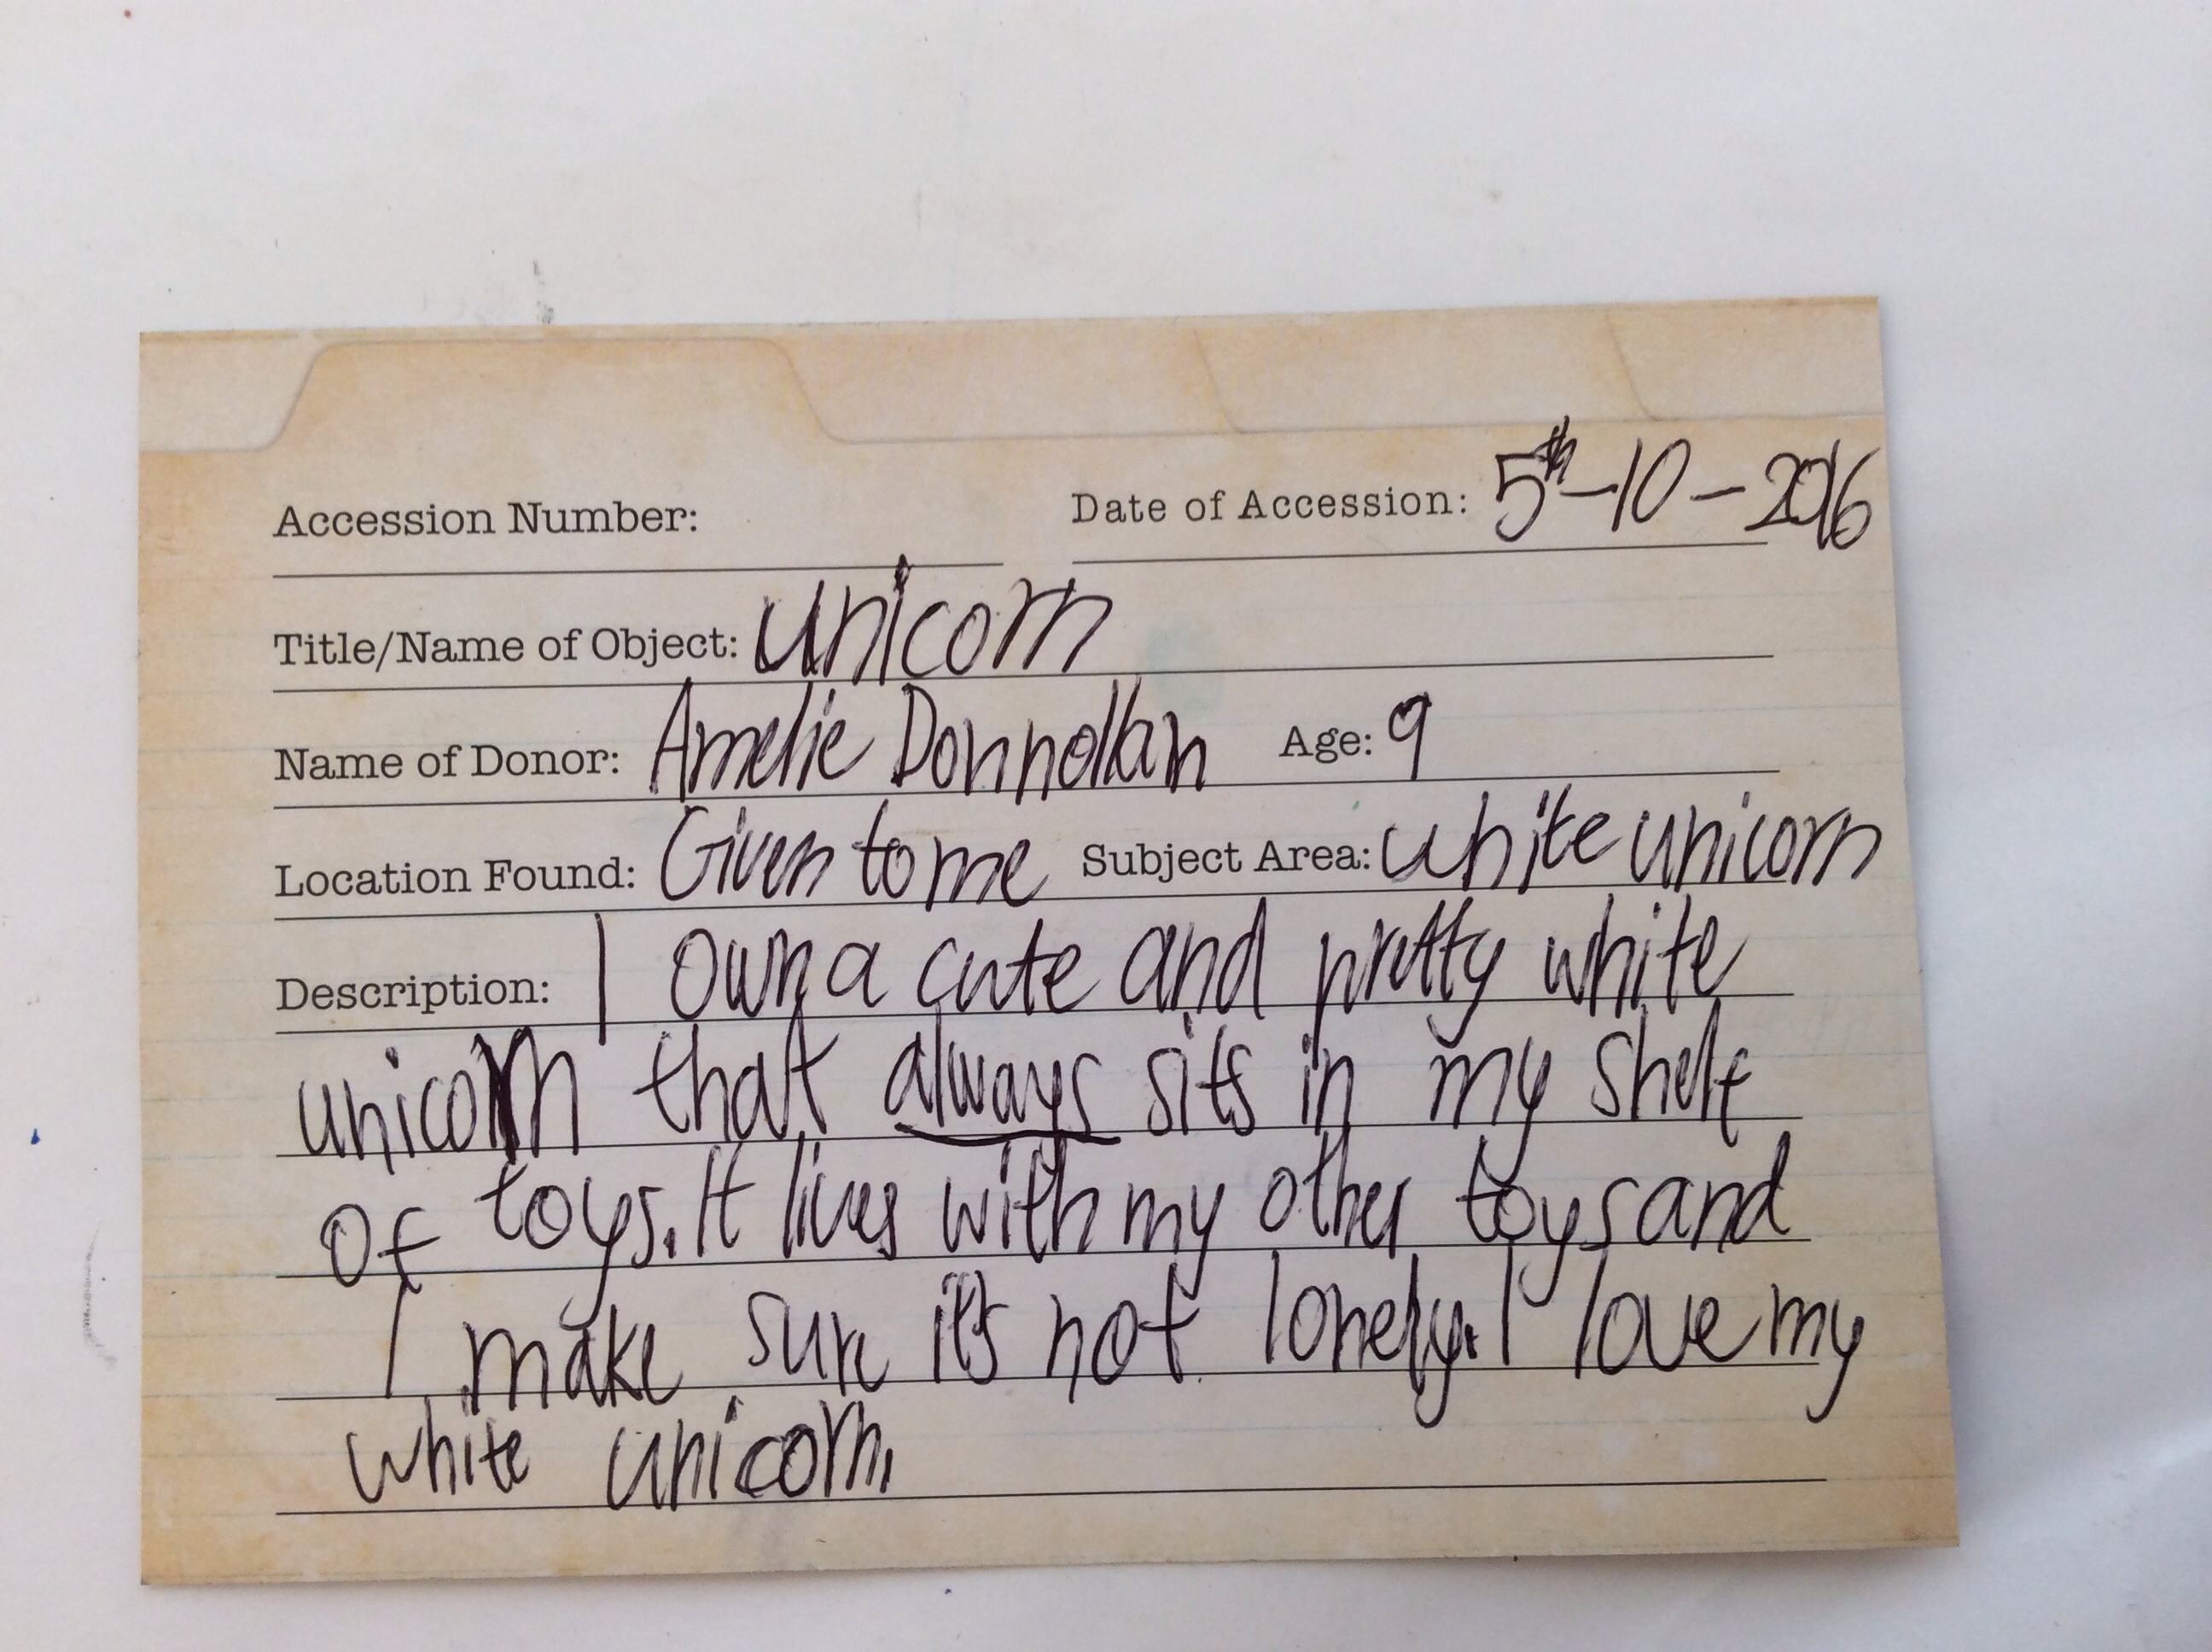 Accession Number: Date of Accession: 5th-10-2016
Title/Name of Object: unicorn
Name of Donor: Amelie Donnollan Age: 9
Location Found: Given to me Subject Area: white unicorn
Description: I own a cute and pretty white
unicorn that always sits in my shelf
of toys. It lives with my other toys and
I make sure it's not lonely. I love my
white unicorn.